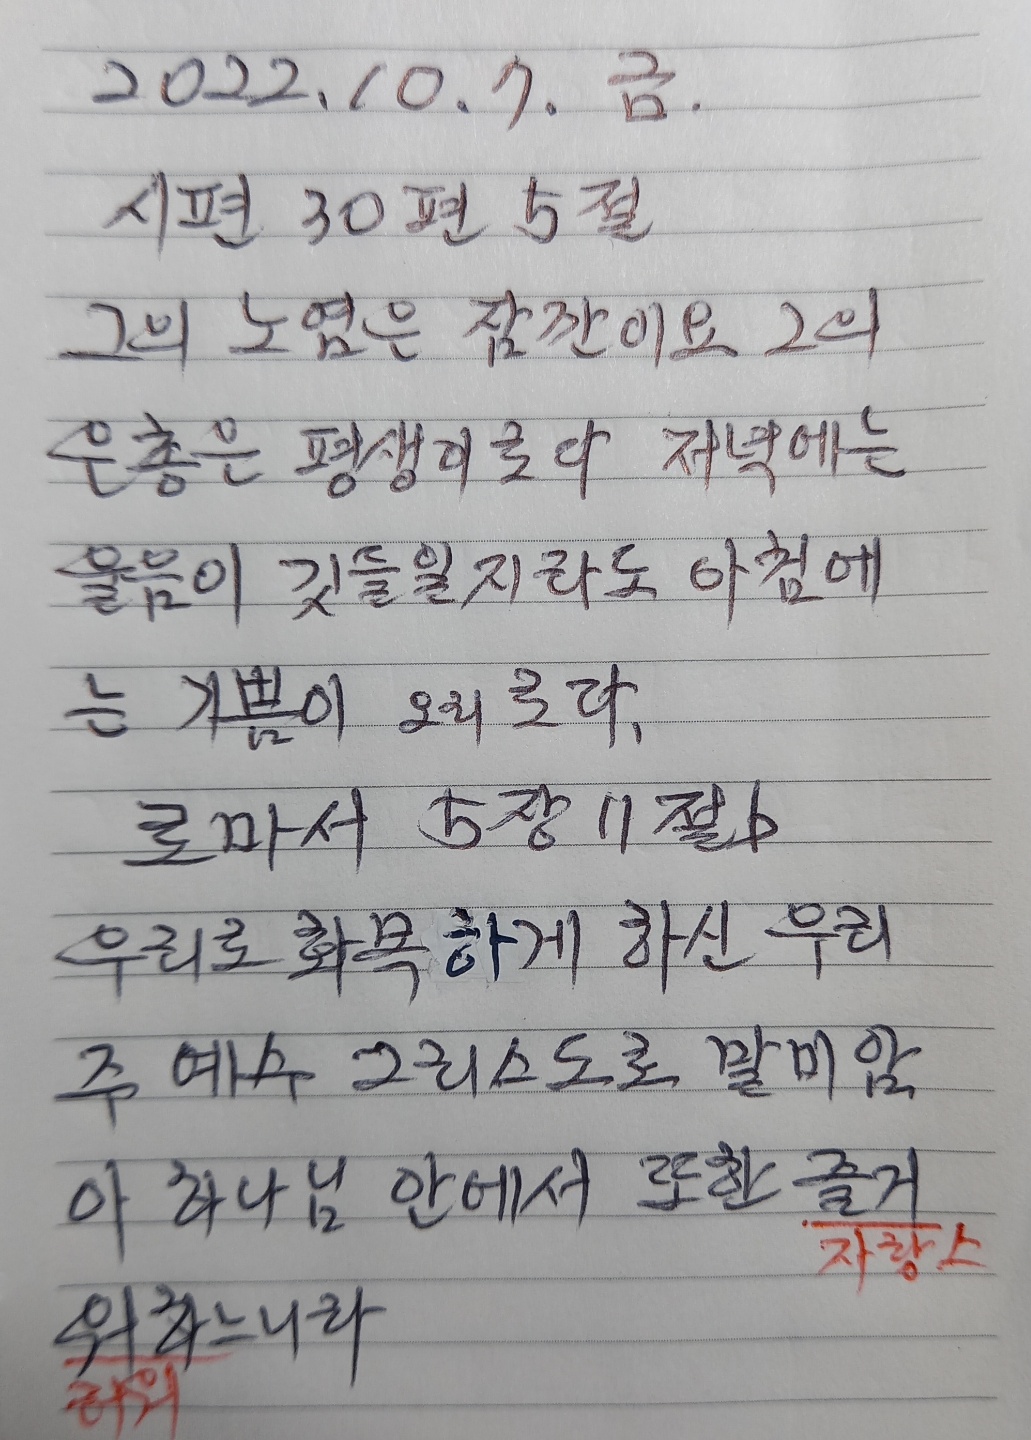 2022. 10. 7. 금.
시편 30편 5절
그의 노염은 잠깐이요 그의
은총은 평생이로다 저녁에는
울음이 깃들일지라도 아침에
는 기쁨이 오리로다.
로마서 5장 11절b
우리로 화목하게 하신 우리
주 예수 그리스도로 말미암
아 하나님 안에서 또한 즐거
자랑스
워하느니라
러워